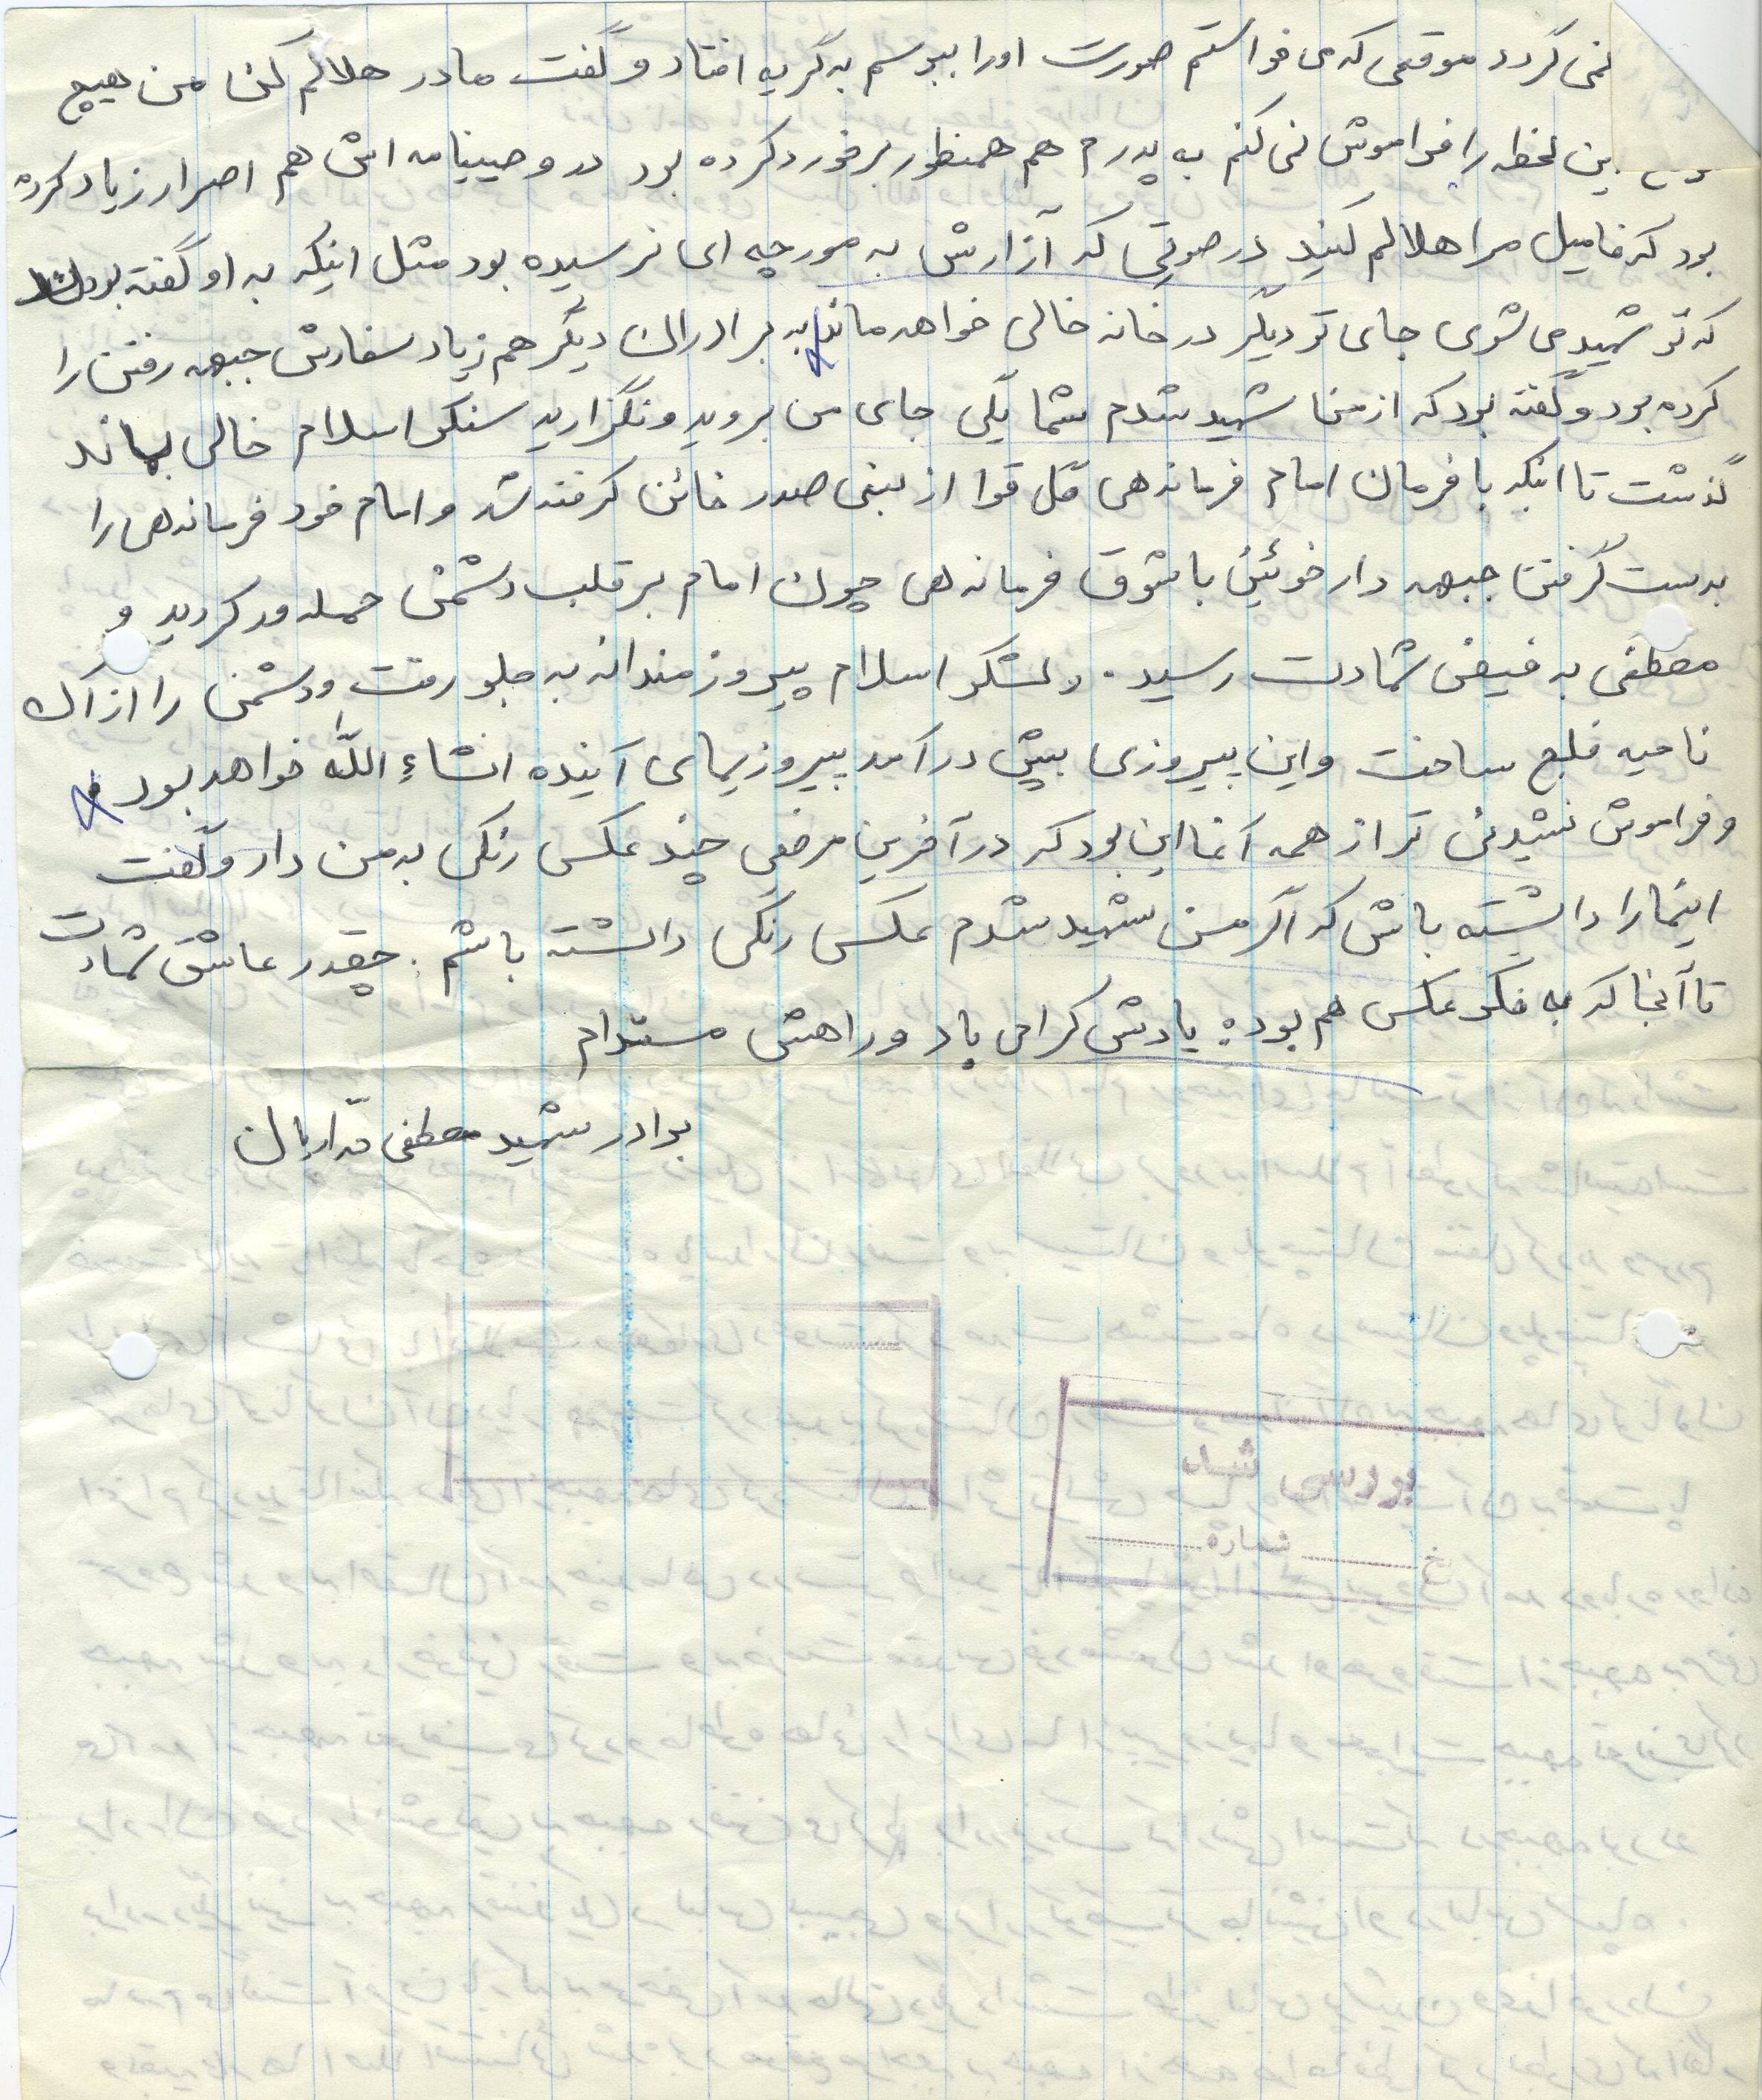 نمی گردد موقعی که می خواستم صورت او را ببوسم به گریه افتاد و گفت مادر حلالم کن من هیچ
این لحظه را فراموش نمی کنم به پدرم هم همنطور برخورد کرده بود در وصیتنامه اش هم اصرار زیاد کرده
بود که فامیل مرا حلالم کنید در صورتی که آزارش به مورچه ای نرسیده بود مثل اینکه به او گفته بودند
که تو شهید می شوی جای تو دیگر در خانه خالی خواهد ماند به برادران دیگر هم زیاد سفارش جبهه رفتن را
کرده بود و گفته بود که از من شهید شدم شما یکی جای من بروید و نگزارید سنگر اسلام خالی بماند
گذشت تا اینکه با فرمان امام فرماندهی کل قوا از بنی صدر خائن گرفته شد و امام خود فرماندهی را
بدست گرفتن جبهه دارخوئین با شوق فرماندهی چون امام بر قلب دشمن حمله ور کردید و
مصطفی به فیض شهادت رسید . و لشکر اسلام پیروزمندانه به جلو رفت و دشمن را از آن
ناحیه قلع ساخت و این پیروزی پیش درآمد پیروزیهای آینده انشاءالله خواهد بود
و فراموش نشدنی تر از همه آنها این بود که در آخرین مرخصی چند عکس رنگی به من داد و گفت
اینها را داشته باش که اگر من شهید شدم عکس رنگی داشته باشم . چقدر عاشق شهادت
تا آنجا که به فکر عکس هم بوده یادش گرامی باد و راهش مستدام
برادر شهید مصطفی
بررسی شد
شماره